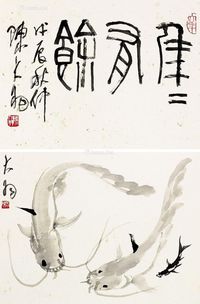 年年有餘
戊辰秋仲
陳大羽
大羽